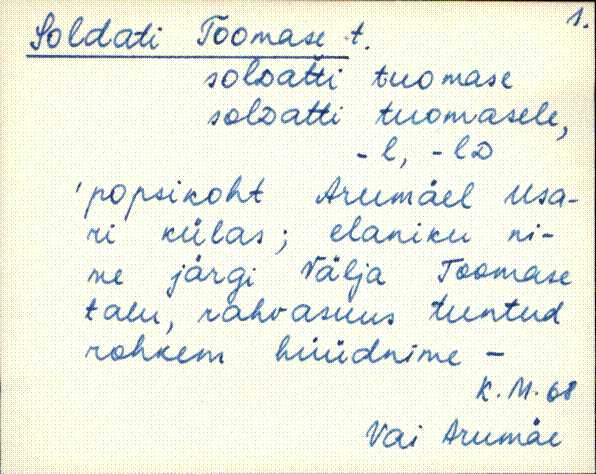 1.
Soldati Toomase t.
solᴅatti tuomase
solᴅatti tuomasele,
-l, -lᴅ
'popsikoht Arumäel Usa-
ri külas; elaniku ni-
me järgi Välja Toomase
talu, rahvasuus tuntud
rohkem hüüdnime –
K.M. 68
Vai Arumäe